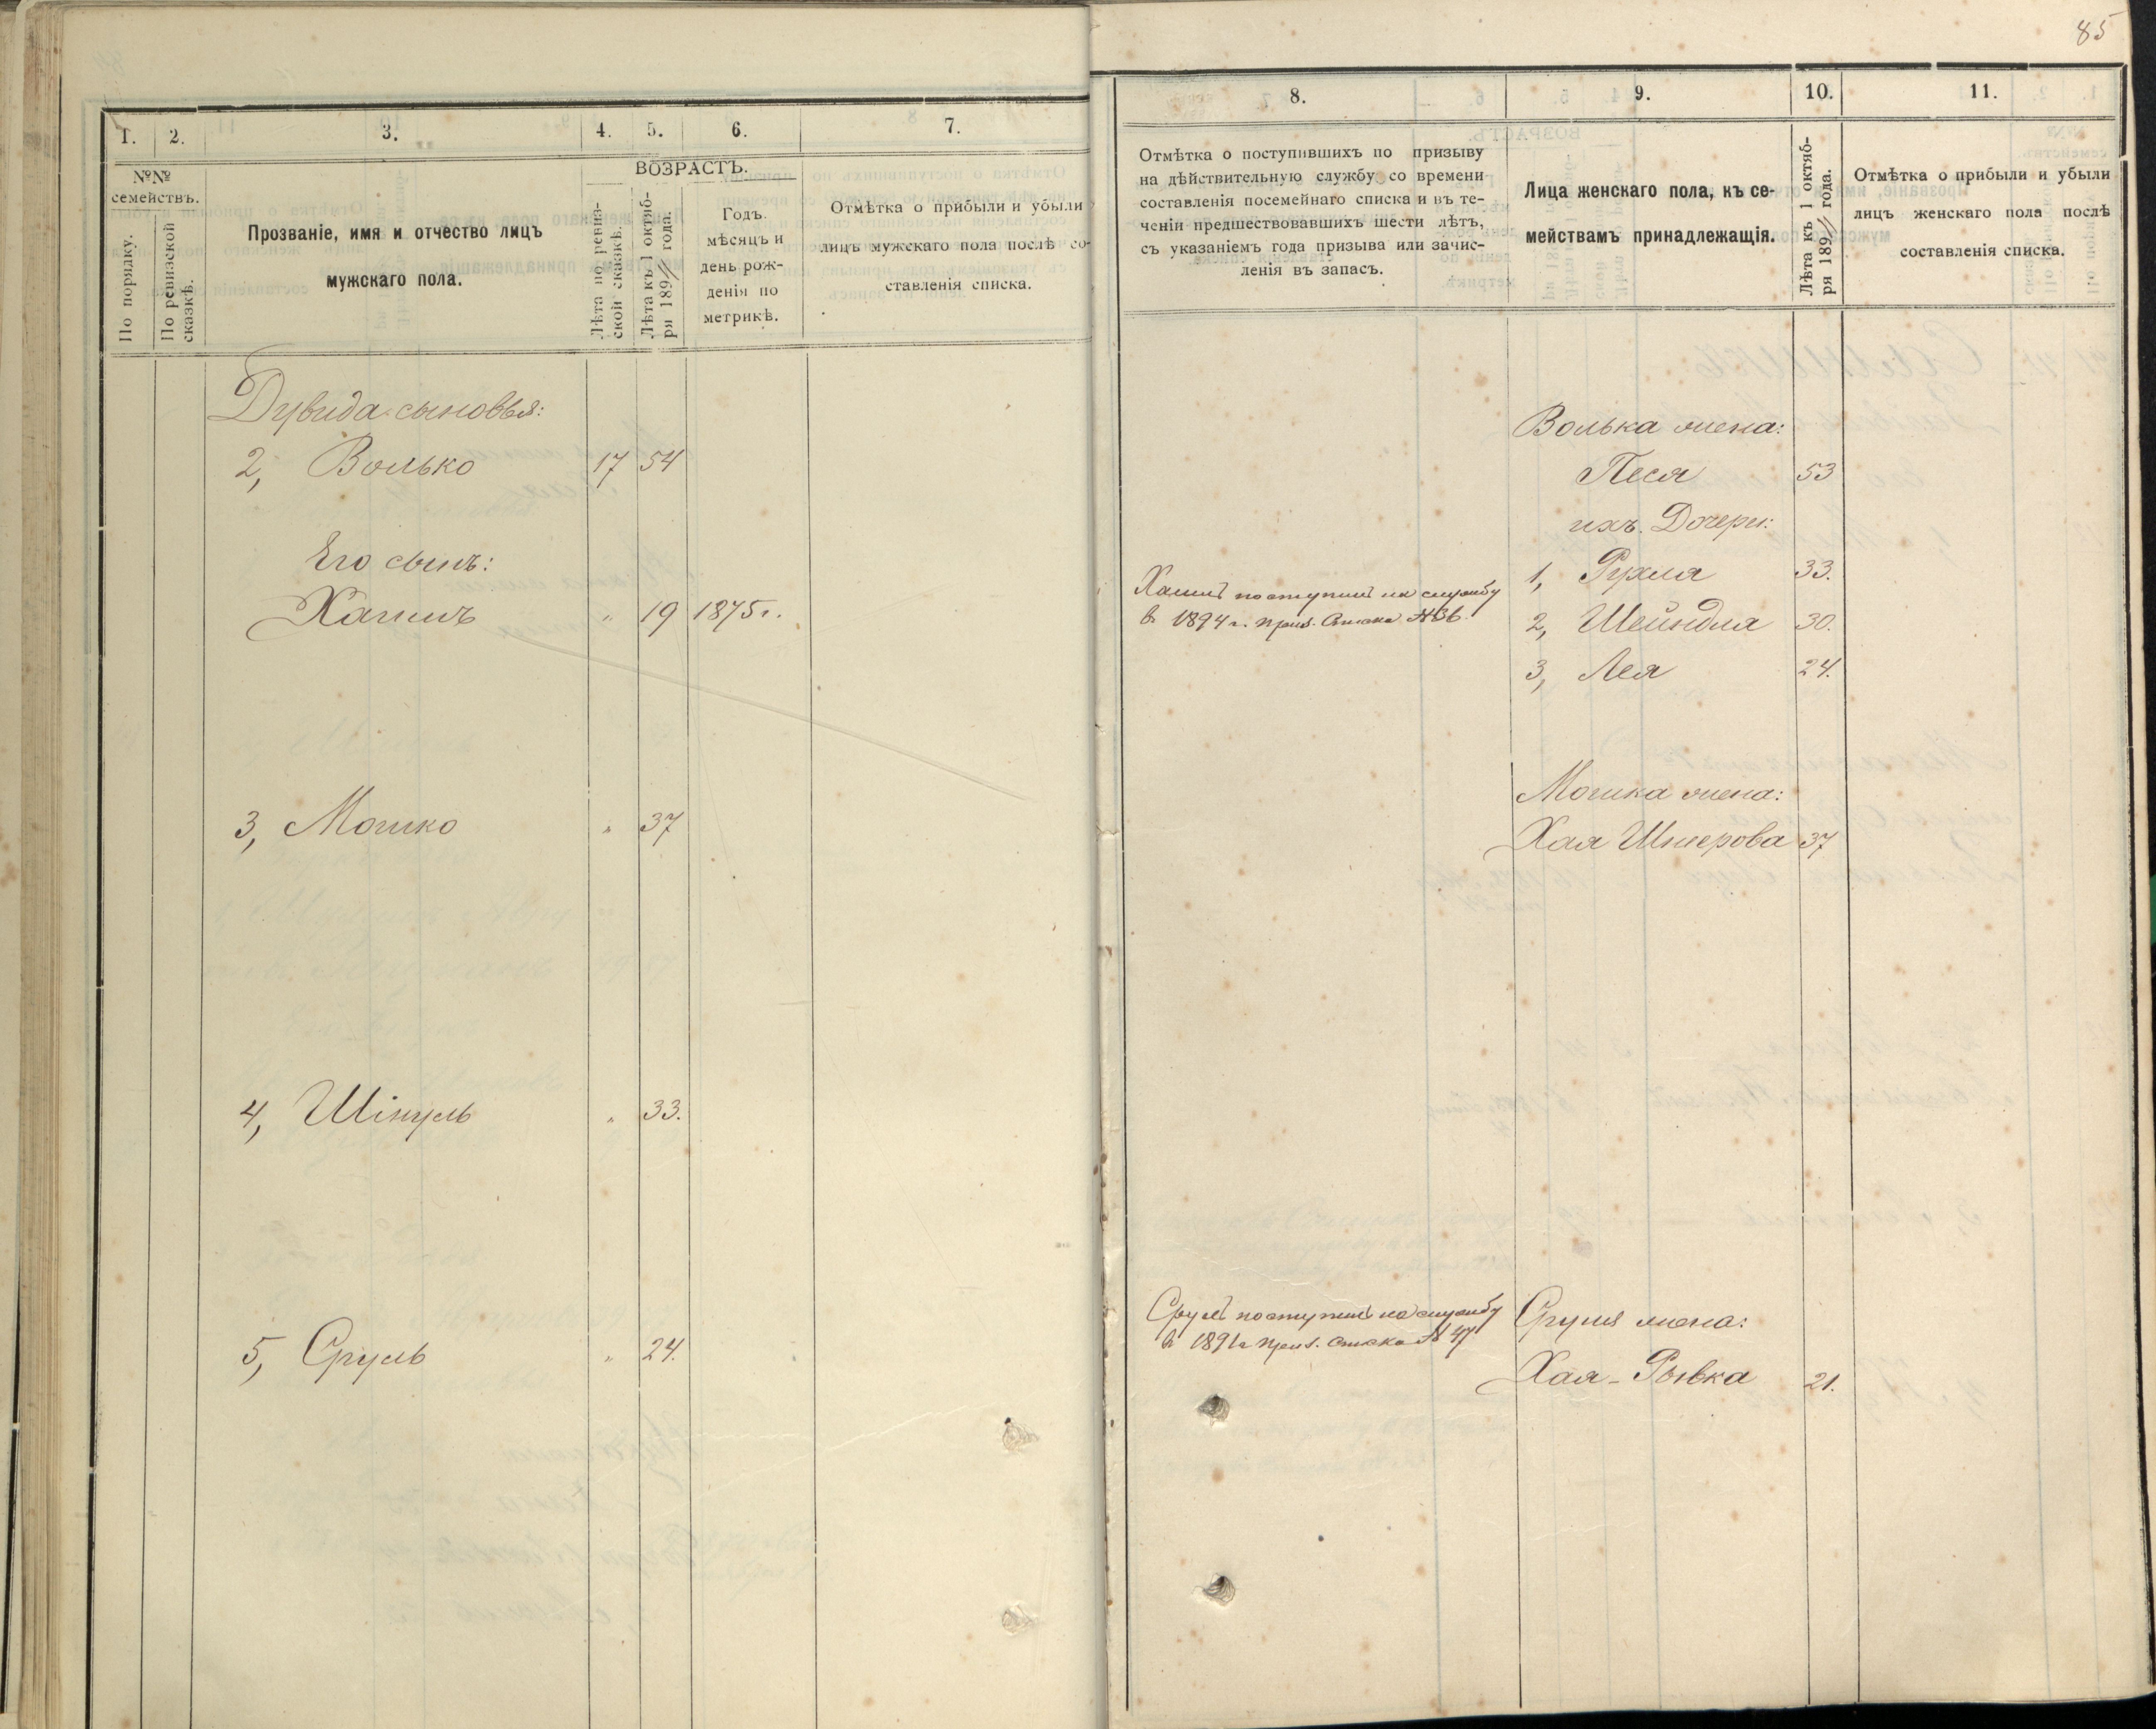 85
1. 2. 3. 4. 5. 6. 7.
№№
семействъ.
По порядку.
По ревизской
сказкѣ.
Прозваніе, имя и отчество лицъ
мужскаго пола.
ВОЗРАСТЪ.
Лѣта по ревиз-
ской сказкѣ.
Лѣта къ 1 октяб-
ря 189 года.
Годъ
мѣсяцъ и
день рож-
денія по
метрикѣ.
Отмѣтка о прибыли и убыли
лицъ мужскаго пола послѣ со-
ставленія списка.
Дувида сыновья:
2, Волько 17 54
Его сынъ:
Хаимъ " 19 1875 г.
3, Мошко " 37
4, " 33.
5, Сруль " 24.
8. 9. 10. 11.
Отмѣтка о поступившихъ по призыву
на дѣйствительную службу со времени
составленія посемейнаго списка и въ те-
ченіи предшествовавшихъ шести лѣтъ,
съ указаніемъ года призыва или зачис-
ленія въ запасъ.
Лица женскаго пола, къ се-
мействамъ принадлежащія.
Лѣта къ 1 октяб-
ря 189 года.
Отмѣтка о прибыли и убыли
лицъ женскаго пола послѣ
составленія списка.
Волька жена:
Песя 53
ихъ Дочери:
1, Рухля 33.
2, Шейндля 30.
3, Лея 24.
поступилъ на службу
в 1894 г. приз. списка
Мошка жена:
Хая 37
Сруль поступилъ на службу
в 1891 г приз. списка № 47
Сруля жена:
Хая-Рывка 21.